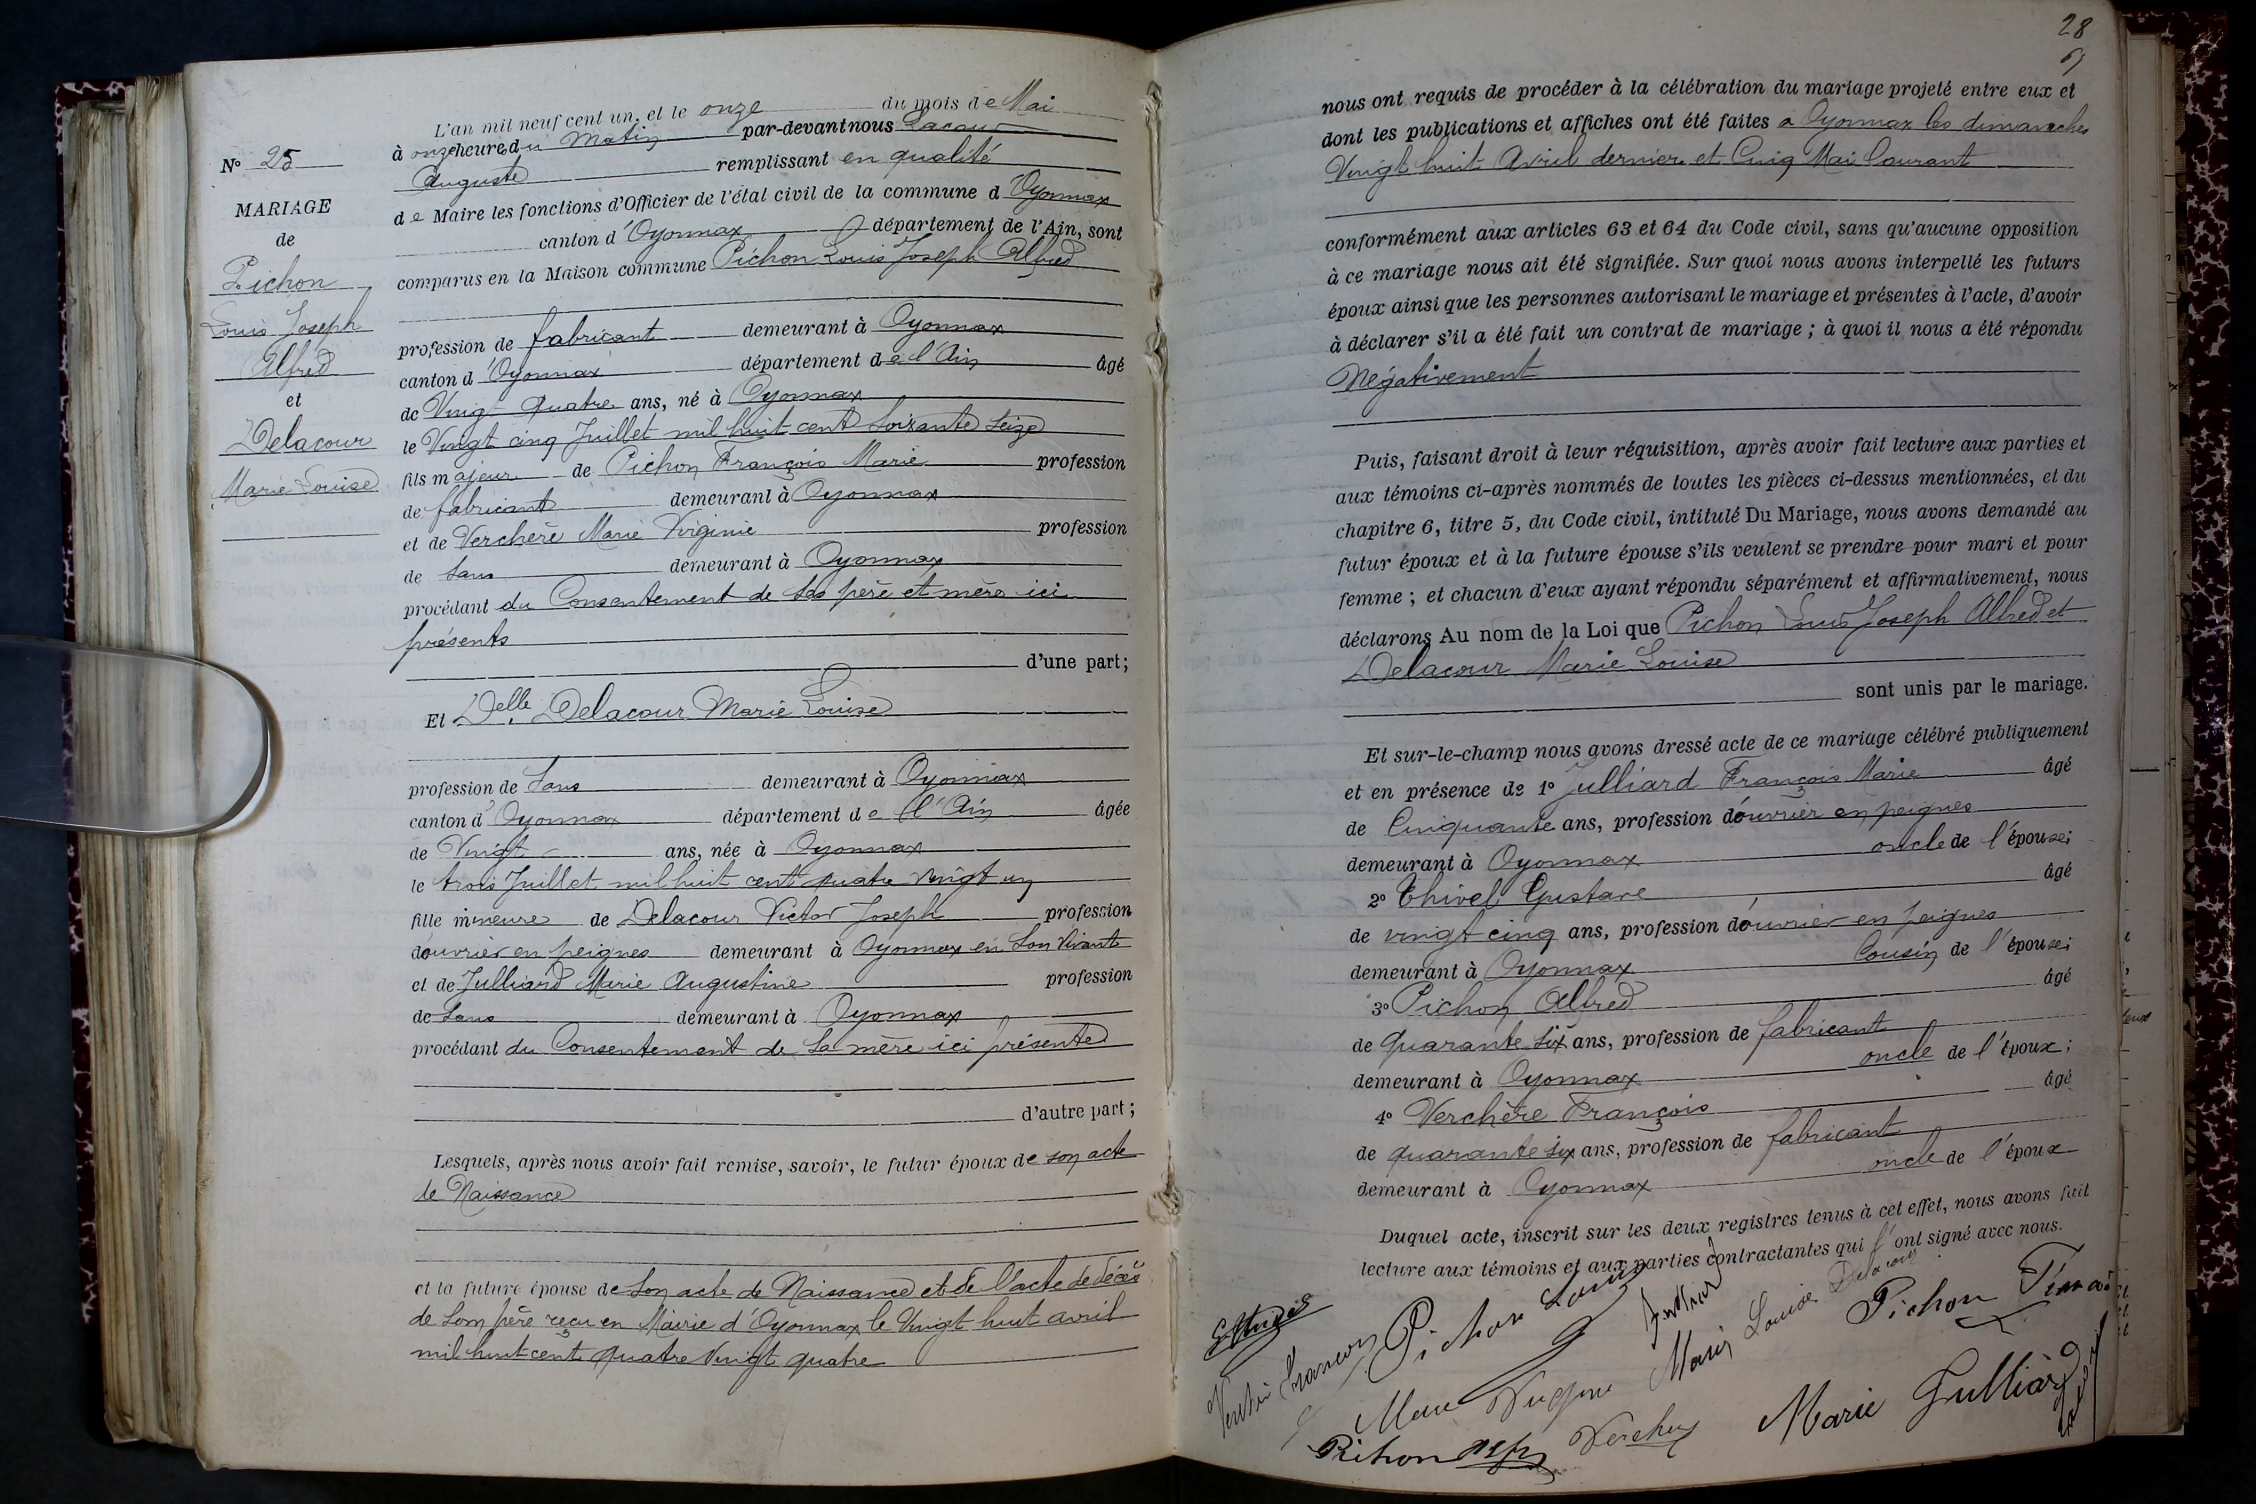 N° 25
MARIAGE
de
Pichon
Louis Joseph
Alfred
et
Delacour
Marie Louise
L'an mil neuf cent un, et le onze du mois de Mai
à onze heures du Matin par-devant nous Lacour
Auguste remplissant en qualité
de Maire les fonctions d'Officier de l'état civil de la commune d'Oyonnax
canton d'Oyonnax département de l'Ain, sont
comparus en la Maison commune Pichon Louis Joseph Alfred
profession de fabricant demeurant à Oyonnax
canton d'Oyonnax département de l'Ain âgé
de Vingt quatre ans, né à Oyonnax
le Vingt cinq Juillet mil huit cent soixante seize
fils majeur de Pichon François Marie profession
de fabricant demeurant à Oyonnax
et de Verchère Marie Virginie profession
de sans demeurant à Oyonnax
procédant du Consentement de ses père et mère ici
présents
d'une part;
Et Delle Delacour Marie Louise
profession de Sans demeurant à Oyonnax
canton d'Oyonnax département de l'Ain âgée
de Vingt ans, née à Oyonnax
le trois Juillet mil huit cent quatre vingt un
fille mineure de Delacour Victor Joseph profession
d'ouvrier en peignes demeurant à Oyonnax en son vivant
et de Julliard Marie Augustine profession
de Sans demeurant à Oyonnax
procédant du Consentement de sa mère ici présente
d'autre part;
Lesquels, après nous avoir fait remise, savoir, le futur époux de son acte
de Naissance
et la future épouse de son acte de Naissance et de l'acte de décès
de son père reçu en Mairie d'Oyonnax le Vingt huit avril
mil huit cent quatre vingt quatre
28
nous ont requis de procéder à la célébration du mariage projeté entre eux et
dont les publications et affiches ont été faites a Oyonnax les dimanches
Vingt huit Avril dernier et Cinq Mai Courant
conformément aux articles 63 et 64 du Code civil, sans qu'aucune opposition
à ce mariage nous ait été signifiée. Sur quoi nous avons interpellé les futurs
époux ainsi que les personnes autorisant le mariage et présentes à l'acte, d'avoir
à déclarer s'il a été fait un contrat de mariage; à quoi il nous a été répondu
Négativement
Puis, faisant droit à leur réquisition, après avoir fait lecture aux parties et
aux témoins ci-après nommés de toutes les pièces ci-dessus mentionnées, et du
chapitre 6, titre 5, du Code civil, intitulé Du Mariage, nous avons demandé au
futur époux et à la future épouse s'ils veulent se prendre pour mari et pour
femme; et chacun d'eux ayant répondu séparément et affirmativement, nous
déclarons Au nom de la Loi que Pichon Louis Joseph Alfred et
Delacour Marie Louise
sont unis par le mariage.
Et sur-le-champ nous avons dressé acte de ce mariage célébré publiquement
et en présence de 1° Julliard François Marie âgé
de Cinquante ans, profession d'ouvrier en peignes
demeurant à Oyonnax oncle de l'épouse;
2° Thivel Gustave âgé
de vingt cinq ans, profession d'ouvrier en peignes
demeurant à Oyonnax Cousin de l'épouse;
3° Pichon Alfred âgé
de quarante six ans, profession de fabricant
demeurant à Oyonnax oncle de l'époux;
4° Verchère François âgé
de quarante six ans, profession de fabricant
demeurant à Oyonnax oncle de l'époux
Duquel acte, inscrit sur les deux registres tenus à cet effet, nous avons fait
lecture aux témoins et aux parties contractantes qui l'ont signé avec nous.
Pichon Louis
Julliard
Marie Louise Delacour
Pichon
Marie
Pichon
Marie Julliard